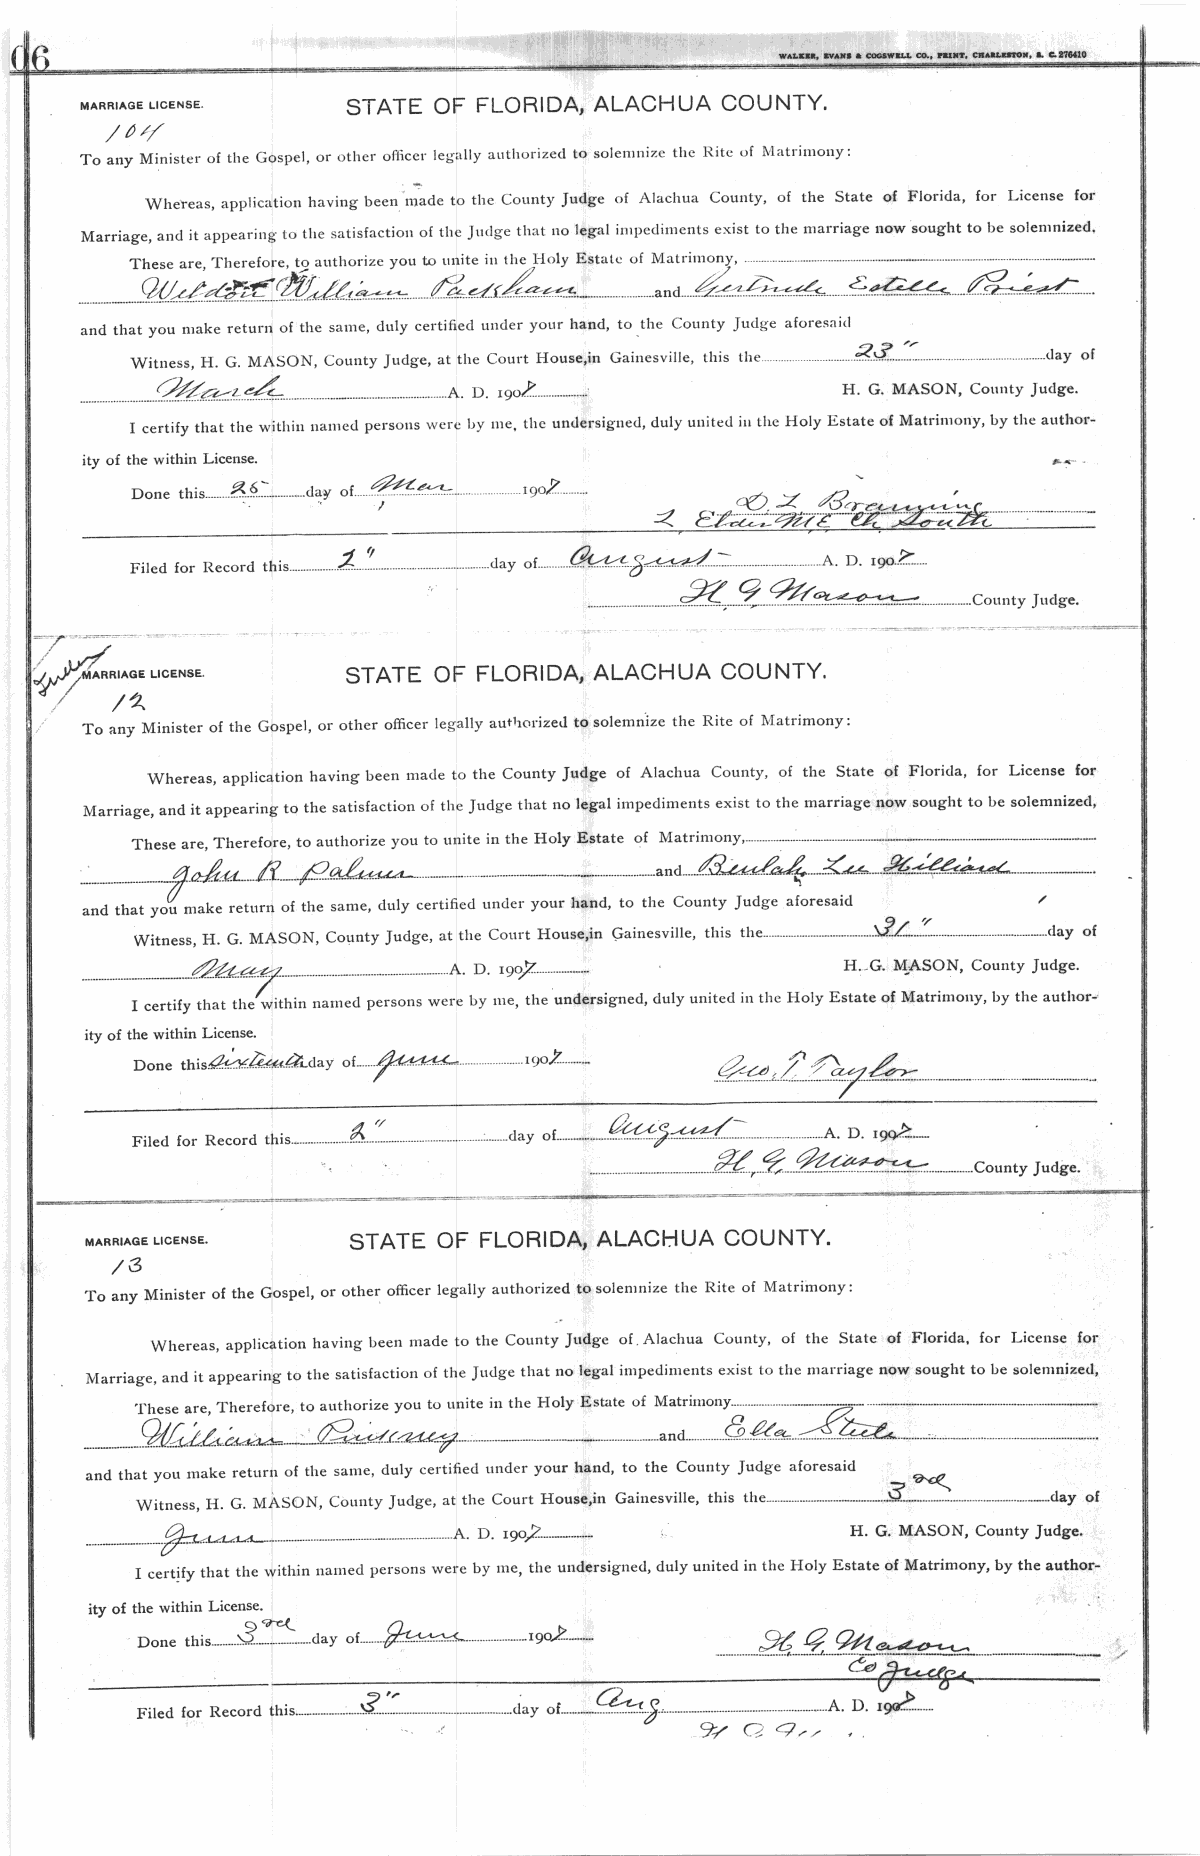 06
WALKER, EVANS & COGSWELL CO., PRINT, CHARLESTON, S. C. 276410
MARRIAGE LICENSE. STATE OF FLORIDA, ALACHUA COUNTY.
104
To any Minister of the Gospel, or other officer legally authorized to solemnize the Rite of Matrimony:
Whereas, application having been made to the County Judge of Alachua County, of the State of Florida, for License for
Marriage, and it appearing to the satisfaction of the Judge that no legal impediments exist to the marriage now sought to be solemnized,
These are, Therefore, to authorize you to unite in the Holy Estate of Matrimony,
Weldon William Packham and Gertrude Estelle Priest
and that you make return of the same, duly certified under your hand, to the County Judge aforesaid
Witness, H. G. MASON, County Judge, at the Court House, in Gainesville, this the 23" day of
March A. D. 1907 H. G. MASON, County Judge.
I certify that the within named persons were by me, the undersigned, duly united in the Holy Estate of Matrimony, by the author-
ity of the within License.
Done this 25 day of Mar 1907
D. L. Branning
L Elder M.E. Ch. South
Filed for Record this 2" day of August A. D. 1907
H. G. Mason County Judge.
MARRIAGE LICENSE. STATE OF FLORIDA, ALACHUA COUNTY.
12
To any Minister of the Gospel, or other officer legally authorized to solemnize the Rite of Matrimony:
Whereas, application having been made to the County Judge of Alachua County, of the State of Florida, for License for
Marriage, and it appearing to the satisfaction of the Judge that no legal impediments exist to the marriage now sought to be solemnized,
These are, Therefore, to authorize you to unite in the Holy Estate of Matrimony,
John R Palmer and Beulah Lee Hilliard
and that you make return of the same, duly certified under your hand, to the County Judge aforesaid
Witness, H. G. MASON, County Judge, at the Court House, in Gainesville, this the 31" day of
May A. D. 1907 H. G. MASON, County Judge.
I certify that the within named persons were by me, the undersigned, duly united in the Holy Estate of Matrimony, by the author-
ity of the within License.
Done this Sixteenth day of June 1907
Geo. T. Taylor
Filed for Record this 2" day of August A. D. 1907
H. G. Mason County Judge.
MARRIAGE LICENSE. STATE OF FLORIDA, ALACHUA COUNTY.
13
To any Minister of the Gospel, or other officer legally authorized to solemnize the Rite of Matrimony:
Whereas, application having been made to the County Judge of Alachua County, of the State of Florida, for License for
Marriage, and it appearing to the satisfaction of the Judge that no legal impediments exist to the marriage now sought to be solemnized,
These are, Therefore, to authorize you to unite in the Holy Estate of Matrimony
William Pinkney and Ella Steele
and that you make return of the same, duly certified under your hand, to the County Judge aforesaid
Witness, H. G. MASON, County Judge, at the Court House, in Gainesville, this the 3rd day of
June A. D. 1907 H. G. MASON, County Judge.
I certify that the within named persons were by me, the undersigned, duly united in the Holy Estate of Matrimony, by the author-
ity of the within License.
Done this 3rd day of June 1907
H. G. Mason
Co Judge
Filed for Record this 3" day of Aug A. D. 1907